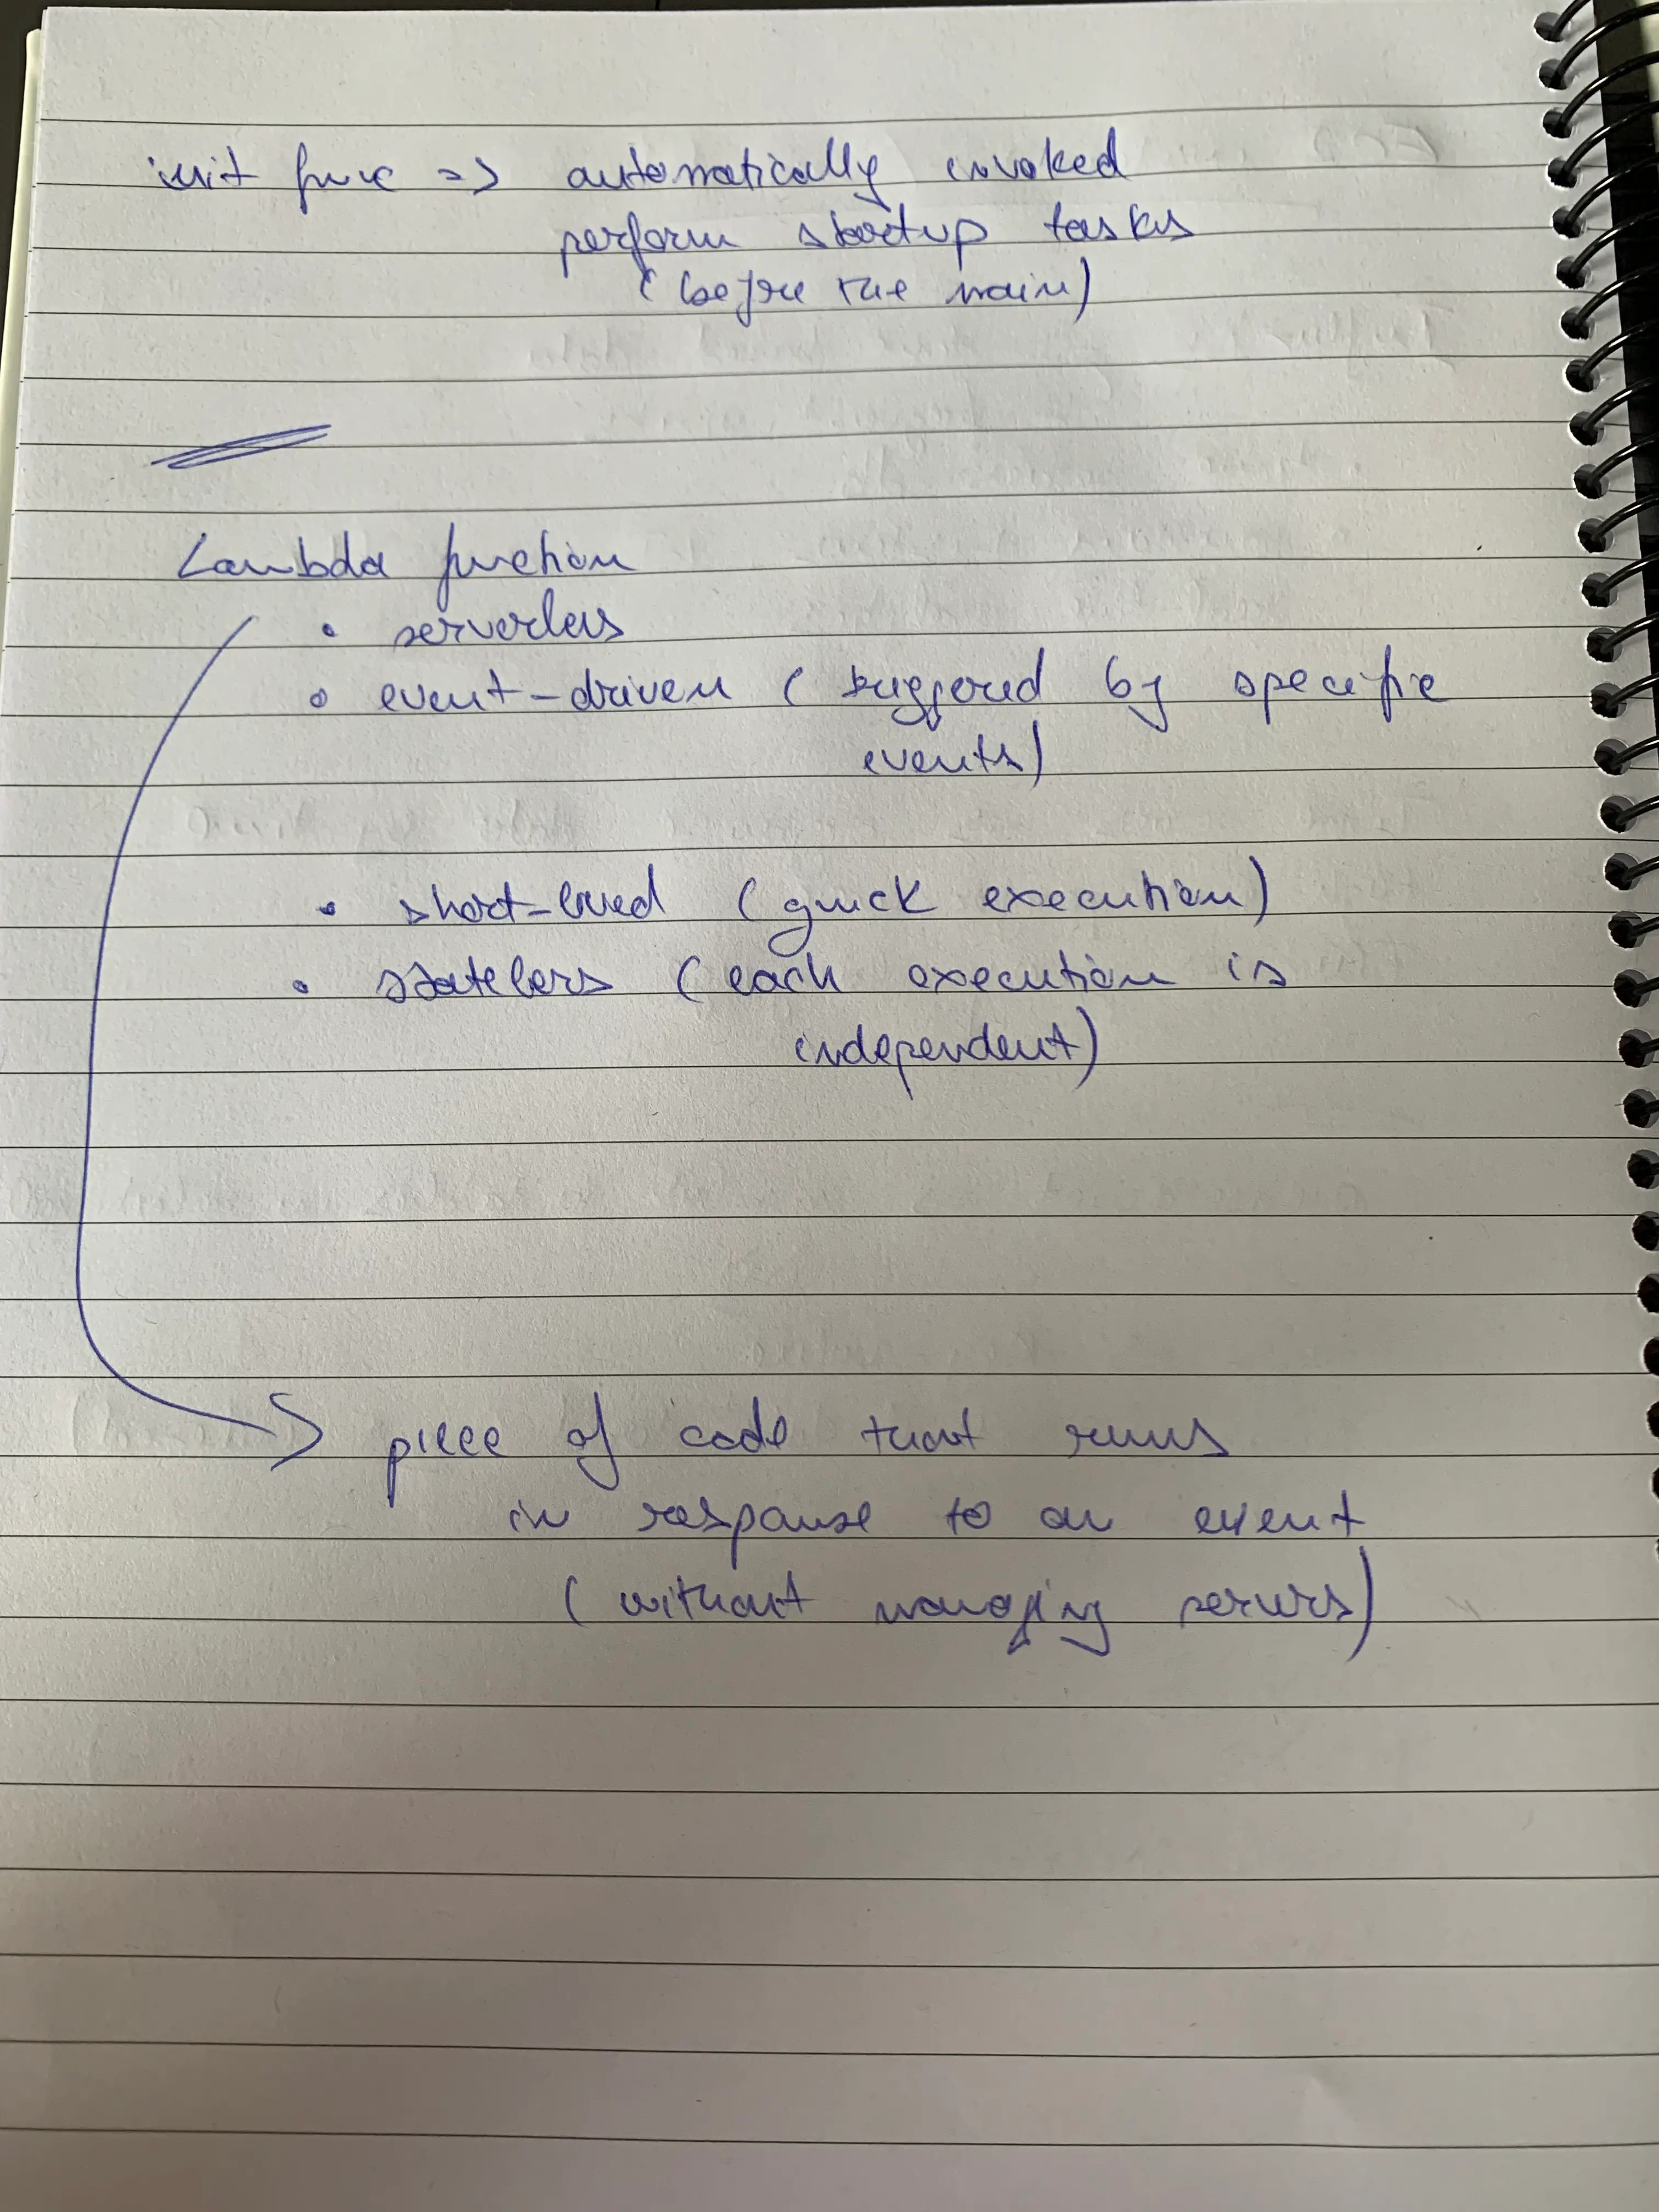 init func => automatically invoked
perform startup tasks
(before the main)
Lambda function
• serverless
• event-driven (triggered by specific
events)
• short-lived (quick execution)
• stateless (each execution is
independent)
piece of code that runs
in response to an event
(without managing servers)